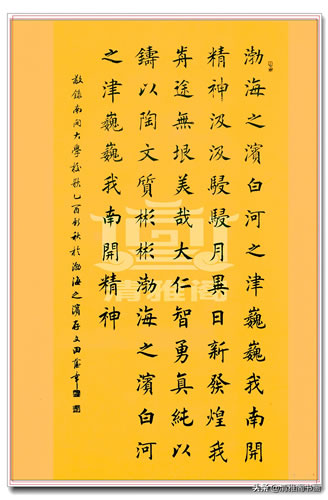 渤海之濱白河之津巍巍我南開
精神汲汲駸駸月異日新發煌我
歬途無垠美哉大仁智勇真純以
鑄以陶文質彬彬渤海之濱白河
之津巍巍我南開精神
敬錄南開大學校歌乙酉秋於渤海之濱存文田蘊章
清雅阁
头条@清雅阁书画